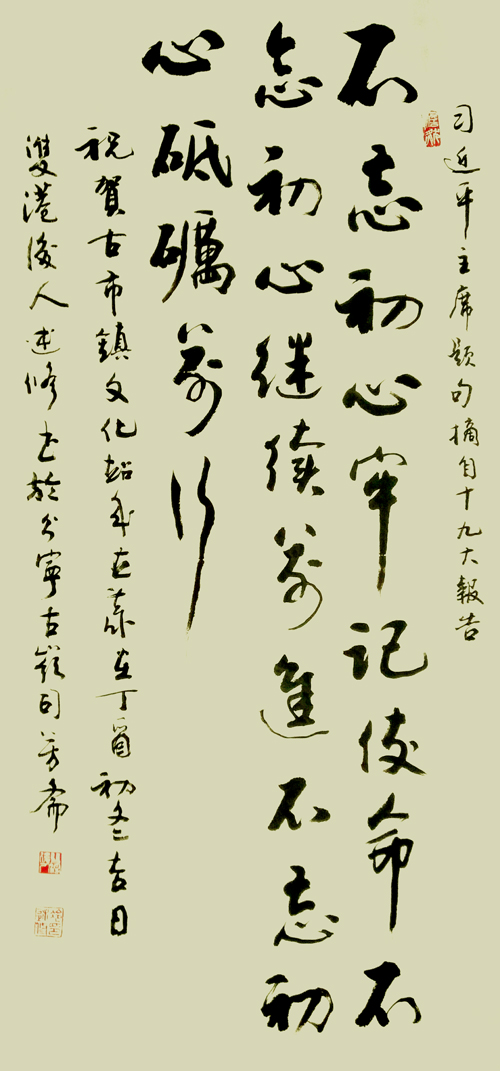 习近平主席题句摘自十九大報告
不忘初心牢记使命不
忘初心继续前進不忘初
心砥礪前行
祝賀古市鎮文化年在歲在丁酉初冬吉日
雙港後人述修书於分寧古司芳斋